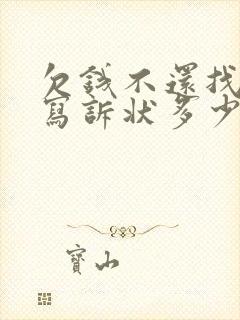 欠錢不還找
寫訴狀多少
寶山